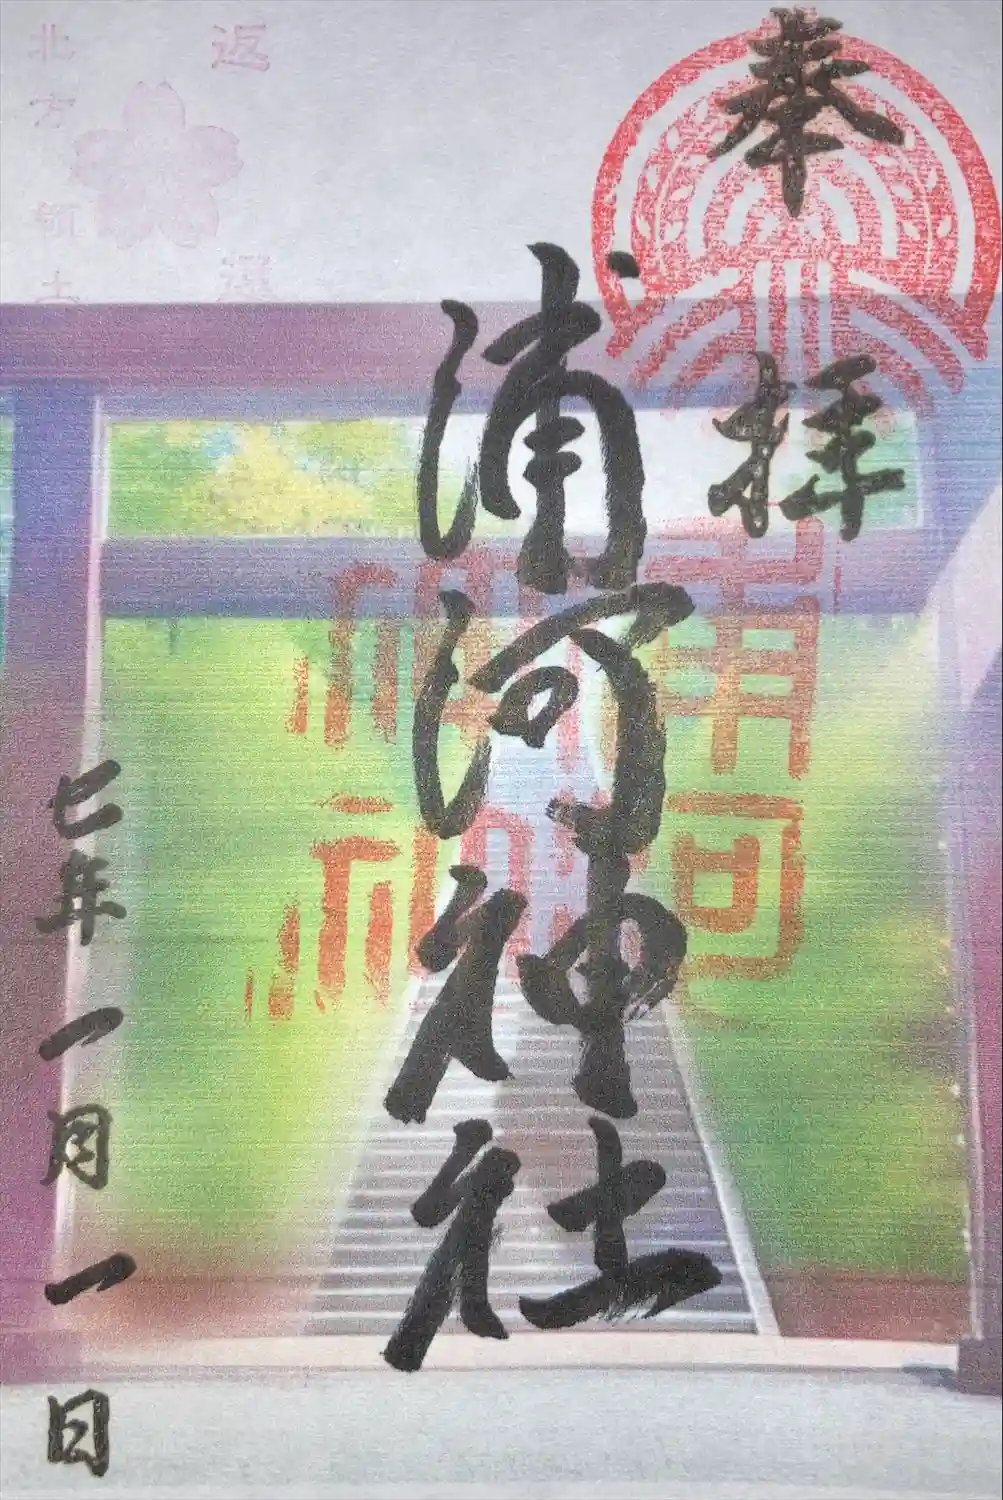 奉拝
浦河神社
浦河
神社
七年一月一日
返還
北方領土